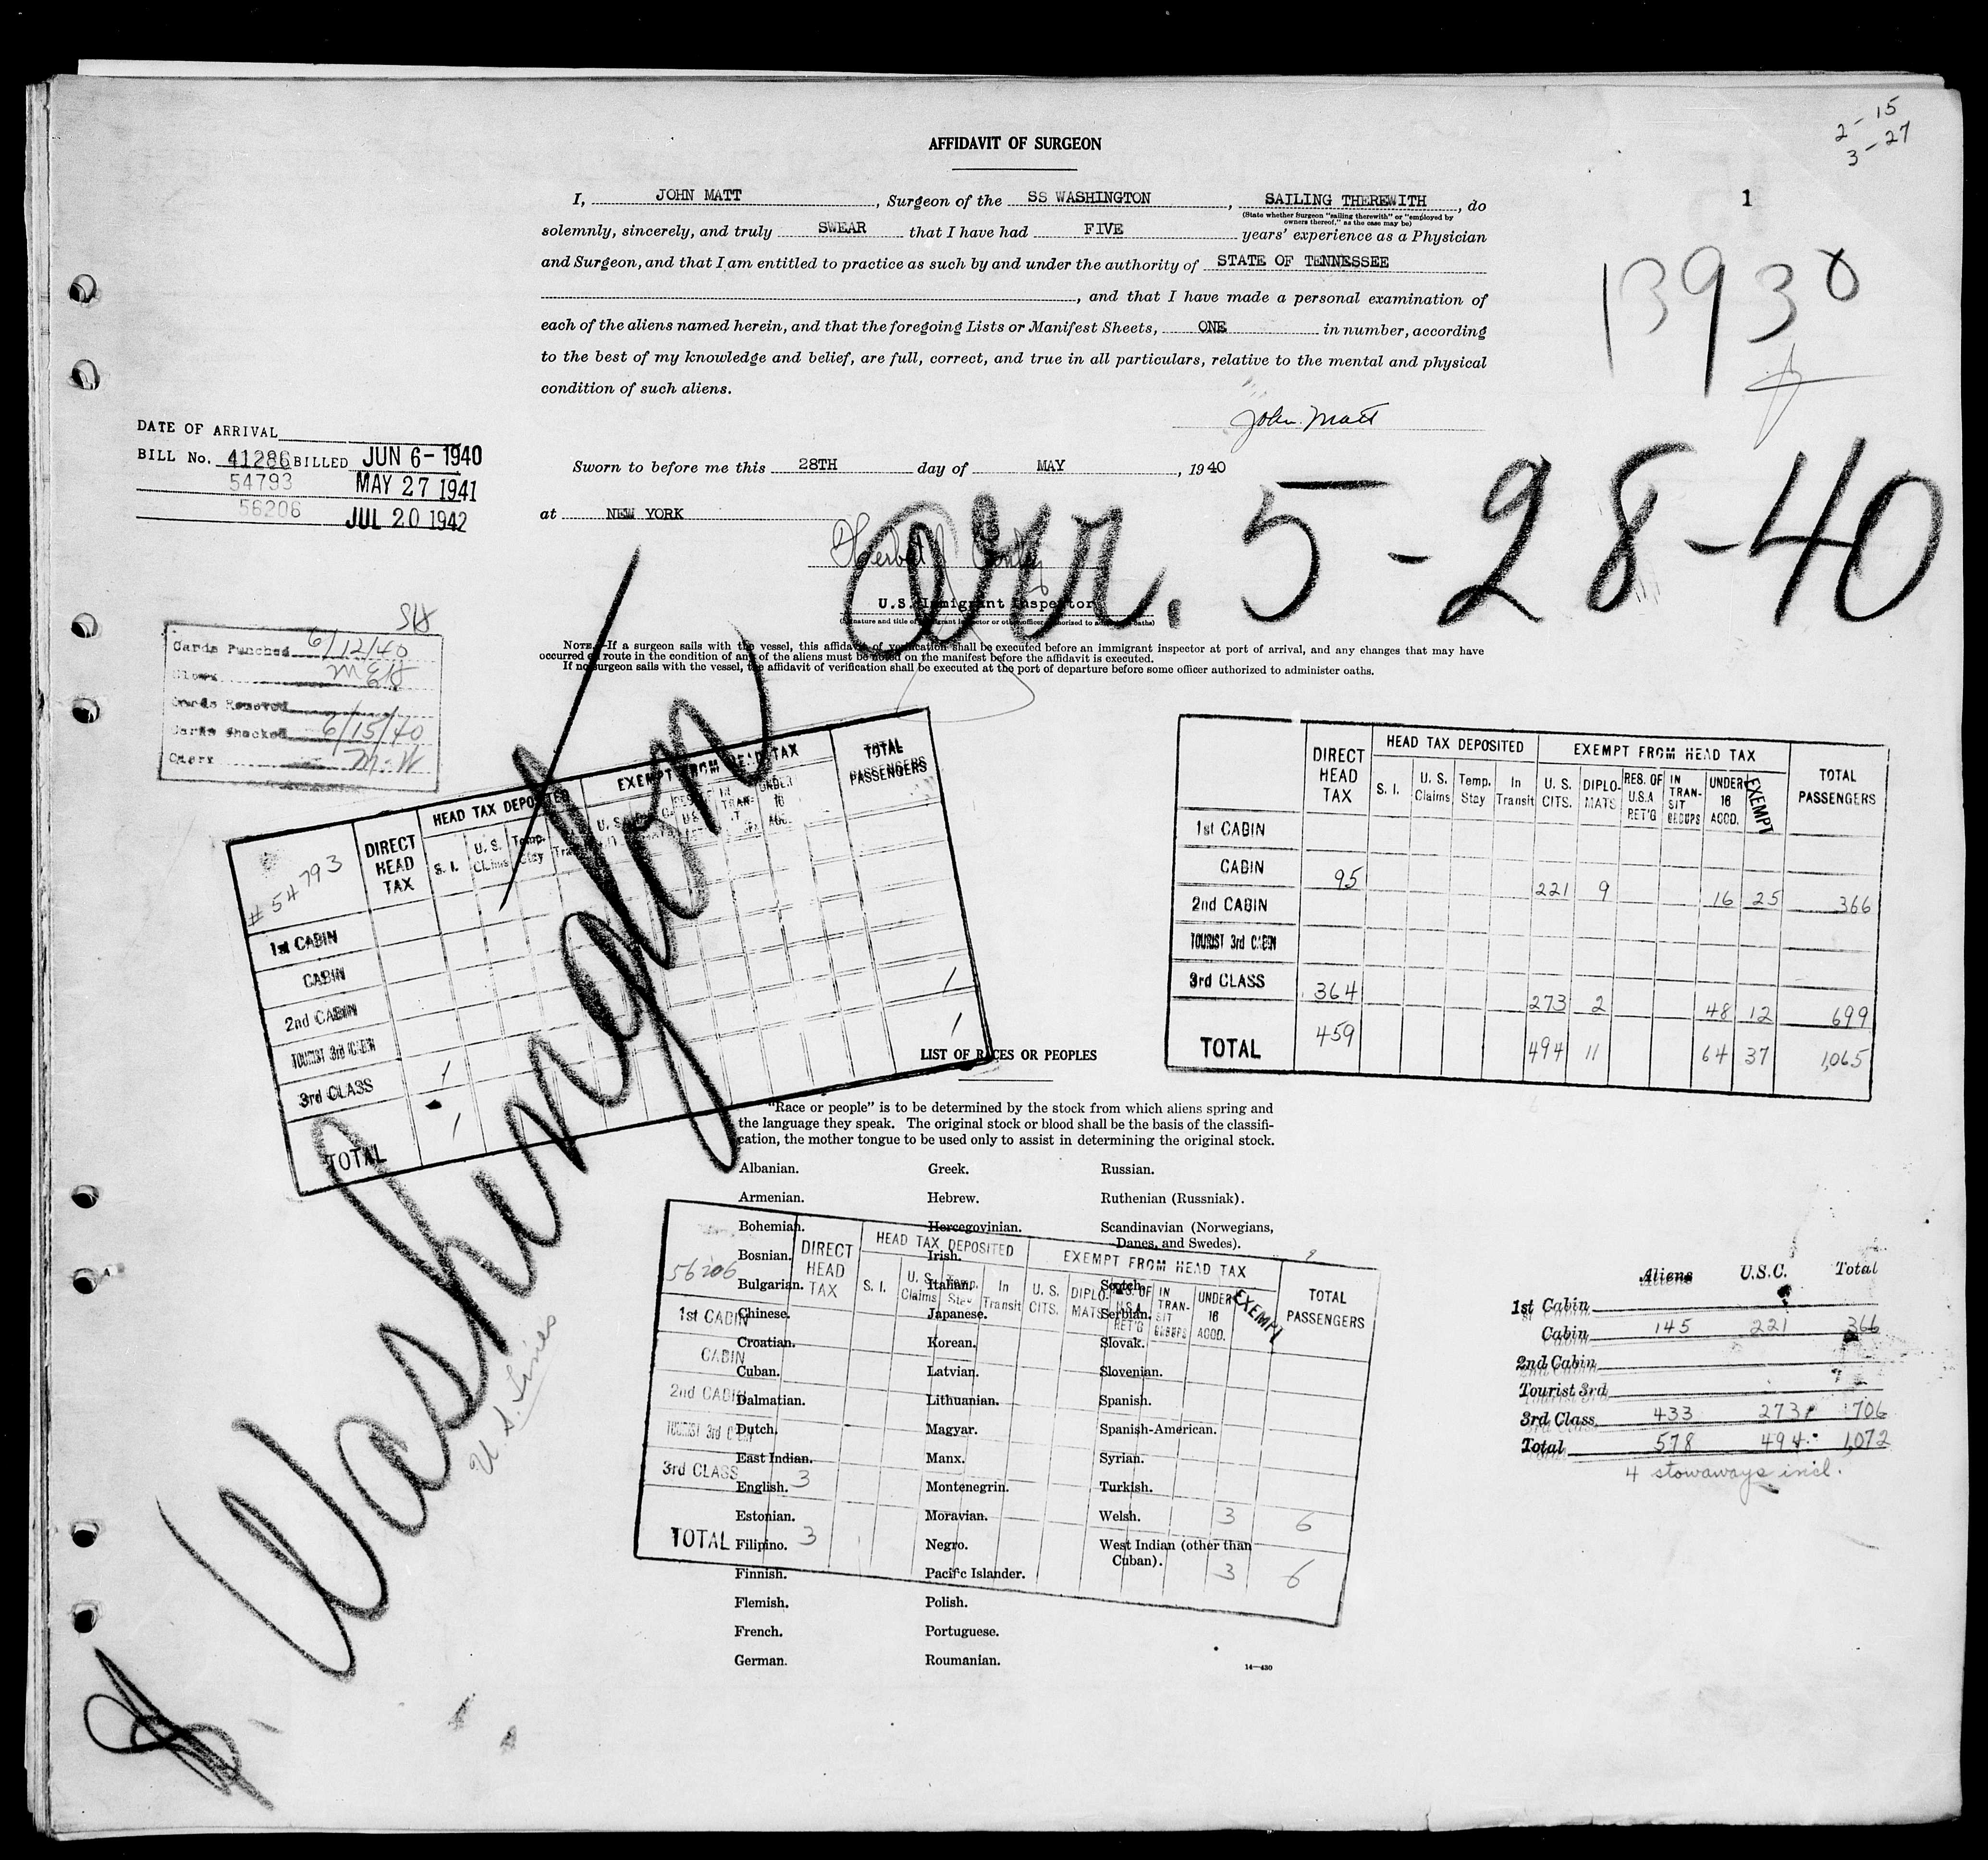 2 - 15
3 - 27
AFFIDAVIT OF SURGEON
1
I, JOHN MATT, Surgeon of the SS WASHINGTON, SAILING THEREWITH, do
(State whether Surgeon "sailing therewith" or "employed by
owners thereof," as the case may be)
solemnly, sincerely, and truly SWEAR that I have had FIVE years' experience as a Physician
and Surgeon, and that I am entitled to practice as such by and under the authority of STATE OF TENNESSEE
, and that I have made a personal examination of
each of the aliens named herein, and that the foregoing Lists or Manifest Sheets, ONE in number, according
to the best of my knowledge and belief, are full, correct, and true in all particulars, relative to the mental and physical
condition of such aliens.
1393
John Matt
DATE OF ARRIVAL
BILL No. 41286 BILLED JUN 6 - 1940
54793 MAY 27 1941
56206 JUL 20 1942
Sworn to before me this 28TH day of MAY, 1940
at NEW YORK
arr. 5-28-40
U.S. Immigrant Inspector
(Signature and title of immigrant inspector or other officer authorized to administer oaths)
NOTE.—If a surgeon sails with the vessel, this affidavit of verification shall be executed before an immigrant inspector at port of arrival, and any changes that may have
occurred en route in the condition of any of the aliens must be noted on the manifest before the affidavit is executed.
If no surgeon sails with the vessel, the affidavit of verification shall be executed at the port of departure before some officer authorized to administer oaths.
Cards Punched 6/12/40
Clerk MEH
Cards Removed
Cards Checked 6/15/40
Clerk M.W
S. Washington
U.S. Lines
# 54793
DIRECT HEAD TAX
HEAD TAX DEPOSITED
EXEMPT FROM HEAD TAX
TOTAL PASSENGERS
S. I. U. S. Claims Temp. Stay
1st CABIN
CABIN
2nd CABIN
TOURIST 3rd CABIN
3rd CLASS 1 1
TOTAL 1 1
DIRECT HEAD TAX
HEAD TAX DEPOSITED
EXEMPT FROM HEAD TAX
TOTAL PASSENGERS
S. I. U. S. Claims Temp. Stay In Transit U. S. CITS. DIPLO-MATS RES. OF U.S.A RET'G IN TRAN-SIT GROUPS UNDER 16 ACCD. EXEMPT
1st CABIN
CABIN 95 221 9 16 25 366
2nd CABIN
TOURIST 3rd CABIN
3rd CLASS 364 273 2 48 12 699
TOTAL 459 494 11 64 37 1,065
LIST OF RACES OR PEOPLES
"Race or people" is to be determined by the stock from which aliens spring and
the language they speak. The original stock or blood shall be the basis of the classifi-
cation, the mother tongue to be used only to assist in determining the original stock.
Albanian.
Armenian.
Bohemian.
Bosnian.
Bulgarian.
Chinese.
Croatian.
Cuban.
Dalmatian.
Dutch.
East Indian.
English.
Estonian.
Filipino.
Finnish.
Flemish.
French.
German.
Greek.
Hebrew.
Hercegovinian.
Irish.
Italian.
Japanese.
Korean.
Latvian.
Lithuanian.
Magyar.
Manx.
Montenegrin.
Moravian.
Negro.
Pacific Islander.
Polish.
Portuguese.
Roumanian.
Russian.
Ruthenian (Russniak).
Scandinavian (Norwegians,
Danes, and Swedes).
Scotch.
Serbian.
Slovak.
Slovenian.
Spanish.
Spanish-American.
Syrian.
Turkish.
Welsh.
West Indian (other than
Cuban).
14—430
56206
DIRECT HEAD TAX
HEAD TAX DEPOSITED
EXEMPT FROM HEAD TAX
TOTAL PASSENGERS
S. I. U. S. Claims Temp. Stay In Transit U. S. CITS. DIPLO-MATS RES. OF U.S.A RET'G IN TRAN-SIT GROUPS UNDER 16 ACCD. EXEMPT
1st CABIN
CABIN
2nd CABIN
TOURIST 3rd CABIN
3rd CLASS 3 3 6
TOTAL 3 3 6
Aliens U.S.C. Total
1st Cabin
Cabin 145 221 366
2nd Cabin
Tourist 3rd
3rd Class 433 273 706
Total 578 494 1,072
4 stowaways incl.